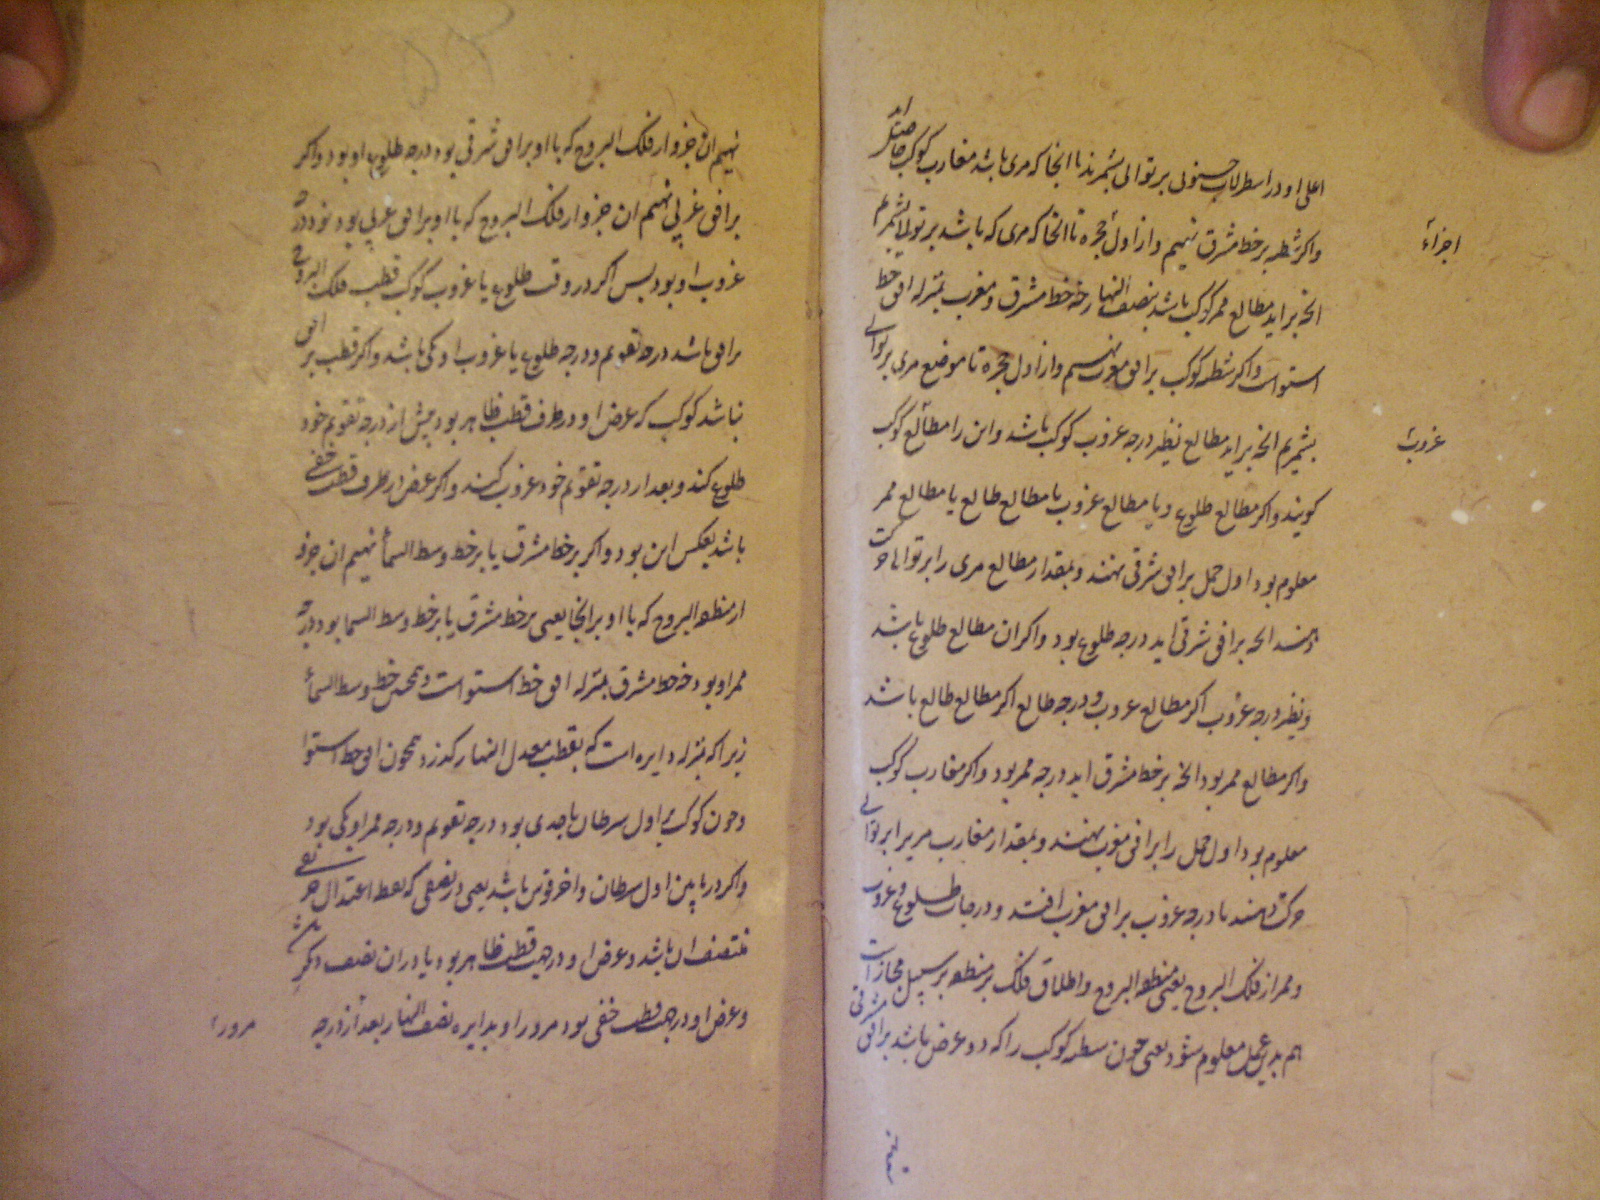 اعلی او در اسطرلاب جنوبی بر توالی بشمرند تا انجا که مری باشد مغارب کوکب حاصل اید
واکر شظیه بر خط مشرق نهیم و از اول حجره تا انجا که مری که باشد بر توالی بشمریم
اجزاء
انچه براید مطالع ممر کوکب باشد بنصف النهار چه خط مشرق و مغرب بمنزله افق خط
استواست واکر شظیه کوکب بر افق مغرب نهیم و از اول حجره تا موضع مری بر توالی
بشمریم انچه براید مطالع نظیر درجه غروب کوکب باشد و این را مطالع کوکب
غروب
کویند واکر مطالع طلوع و یا مطالع غروب یا مطالع طالع یا مطالع ممر
معلوم بود اول حمل بر افق شرقی نهند و بمقدار مطالع مری را بر توالی حرکت
دهند انچه بر افق شرقی اید درجه طلوع بود واکر ان مطالع طلوع باشد
و نظیر درجه غروب اکر مطالع غروب و درجه طالع اکر مطالع طالع باشد
واکر مطالع ممر بود انچه بر خط مشرق اید درجه ممر بود واکر مغارب کوکب
معلوم بود اول حمل را بر افق مغرب نهند و بمقدار مغارب مری را بر توالی
حرکت دهند تا درجه غروب بر افق مغرب افتد و درجات طلوع و غروب
و ممر از فلک البروج یعنی منطقه البروج و اطلاق فلک بر منطقه بر سبیل مجاز است
هم بدین عمل معلوم شود یعنی چون شظیه کوکب را که ذو عرض باشد بر افق مشرقی
نهیم ان جزو از فلک البروج که با او بر افق شرقی بود درجه طلوع او بود واکر
بر افق غربی نهیم ان جزو از فلک البروج که با او بر افق غربی بود درجه
غروب او بود پس اکر در وقت طلوع یا غروب کوکب قطب فلک البروج
بر افق باشد درجه تقویم و درجه طلوع یا غروب او یکی باشد واکر قطب بر افق
نباشد کوکب که عرض او در طرف قطب ظاهر بود پیش از درجه تقویم خود
طلوع کند و بعد از درجه تقویم خود غروب کند واکر عرض در طرف قطب خفی
باشد بعکس این بود واکر بر خط مشرق یا بر خط وسط السماء نهیم ان جزو
از منطقه البروج که با او بر انجا یعنی بر خط مشرق یا بر خط وسط السما بود درجه
ممر او بود چه خط مشرق بمنزله افق خط استواست و همچنین خط وسط السماء
زیرا که بمنزله دایره است که بقطب معدل النهار کذرد همچون افق خط استوا
و چون کوکب اول سرطان یا جدی بود درجه تقویم و درجه ممر او یکی بود
واکر در ما بین اول سرطان و اخر قوس باشد یعنی در نصفی که نقطه اعتدال خریفی
منتصف ان باشد و عرض او در جهت قطب ظاهر بود یا در ان نصف دیکر باشد
و عرض او در جهت قطب خفی بود مرور او بدایره نصف النهار بعد از درجه
مرور